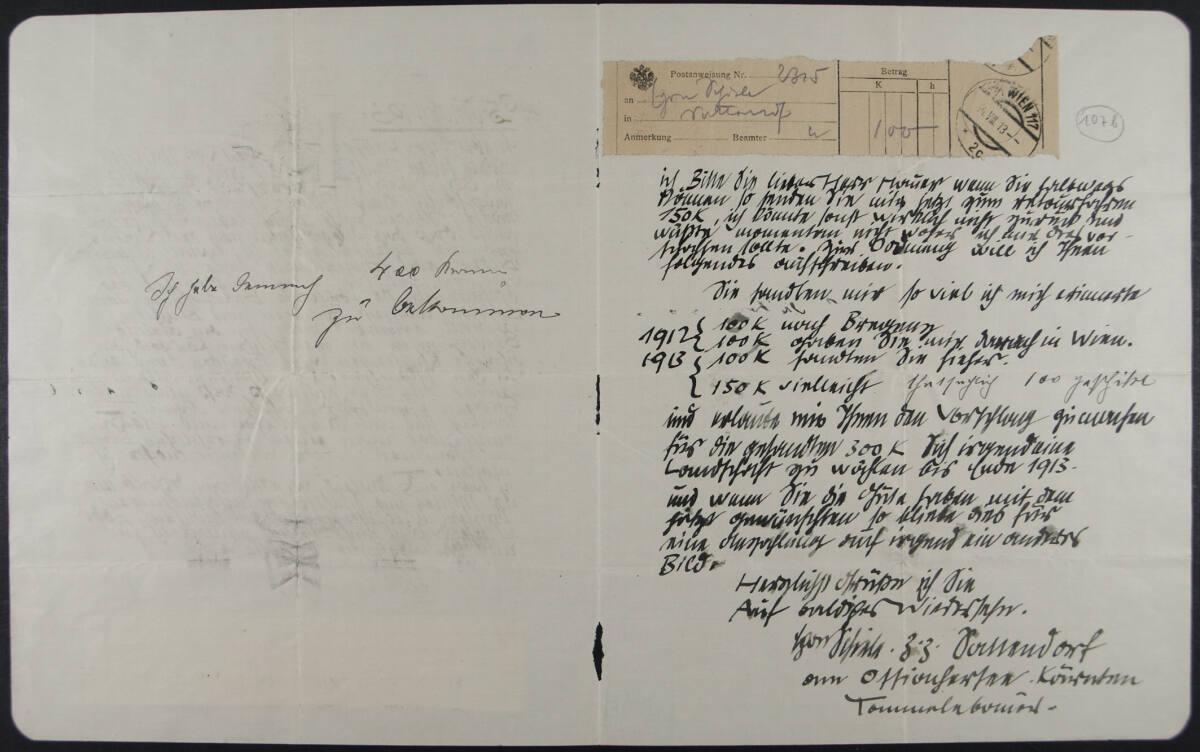 Ich habe demnach 400 Kronen
zu bekommen
Postanweisung Nr. 2315
an Egon Schiele
in Sattendorf
Anmerkung Beamter
Betrag
K h
100 —
WIEN 117
1076
ich Bitte Sie lieber Herr Hauer wenn Sie halbwegs
können so senden Sie mir jetzt zum retourfahren
150 K, ich könnte sonst wirklich nicht zurück und
wüßte momentan nicht woher ich mir dies ver-
schaffen sollte. Zur Ordnung will ich Ihnen
folgendes aufschreiben.
Sie sandten mir so viel ich mich erinnere
1912 { 100 K nach Bregenz
100 K gaben Sie mir danach in Wien.
1913 { 100 K sandten Sie hieher.
150 K vielleicht thatsächlich 100 geschickt
und erlaube mir Ihnen den Vorschlag zu machen
für die gesandten 300 K Sich irgend eine
Landschaft zu wählen bis Ende 1913.
und wenn Sie die Güte haben mit dem
jetzt gewünschten so bliebe dies für
eine Anzahlung auf irgend ein anderes
Bild.
Herzlichst Grüße ich Sie
Auf baldiges Wiedersehn.
Egon Schiele. z. Z. Sattendorf
am Ossiachersee. Kärnten